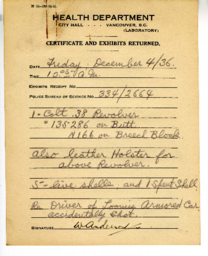 HEALTH DEPARTMENT
CITY HALL VANCOUVER, B.C.
(LABORATORY)
CERTIFICATE AND EXHIBITS RETURNED.
DATE Friday, December 4/36.
TIME 10:05 A.M.
EXHIBITS RECEIPT NO.
POLICE BUREAU OF SCIENCE NO. 334/2664
1 - Colt .38 Revolver
# 135286 on Butt
N166 on Breech Block
also leather Holster for
above Revolver.
5 - live shells and 1 Spent Shell
Re Driver of Loomis Armored Car
accidentally shot.
SIGNATURE